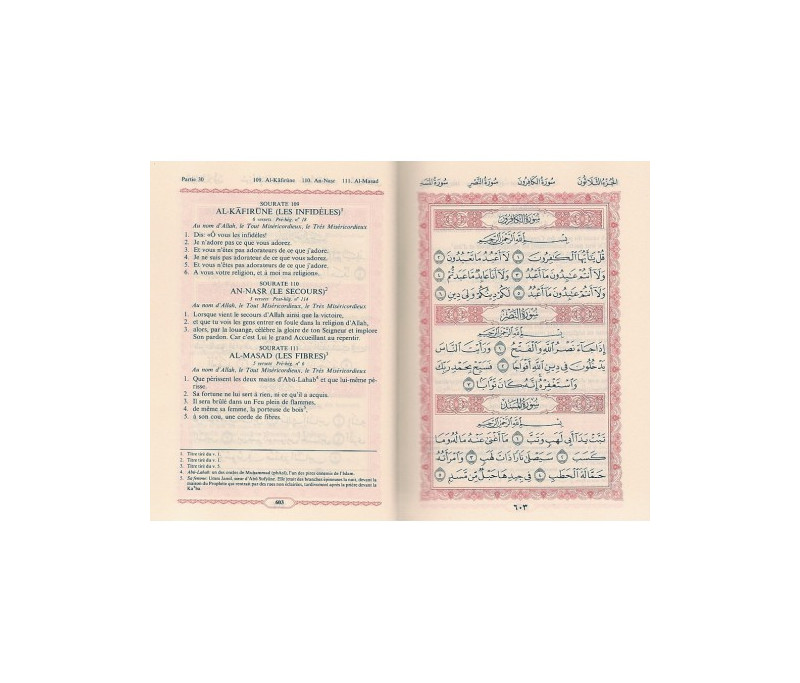 Partie 30 109. Al-Kāfirūne 110. An-Nasr 111. Al-Masad
SOURATE 109
AL-KĀFIRŪNE (LES INFIDÈLES)¹
6 versets Pré-hég. n° 18
Au nom d'Allah, le Tout Miséricordieux, le Très Miséricordieux
1. Dis: «Ô vous les infidèles!
2. Je n'adore pas ce que vous adorez.
3. Et vous n'êtes pas adorateurs de ce que j'adore.
4. Je ne suis pas adorateur de ce que vous adorez.
5. Et vous n'êtes pas adorateurs de ce que j'adore.
6. A vous votre religion, et à moi ma religion».
SOURATE 110
AN-NASR (LE SECOURS)²
3 versets Post-hég. n° 114
Au nom d'Allah, le Tout Miséricordieux, le Très Miséricordieux
1. Lorsque vient le secours d'Allah ainsi que la victoire,
2. et que tu vois les gens entrer en foule dans la religion d'Allah,
3. alors, par la louange, célèbre la gloire de ton Seigneur et implore
Son pardon. Car c'est Lui le grand Accueillant au repentir.
SOURATE 111
AL-MASAD (LES FIBRES)³
5 versets Pré-hég. n° 6
Au nom d'Allah, le Tout Miséricordieux, le Très Miséricordieux
1. Que périssent les deux mains d'Abū-Lahab⁴ et que lui-même pé-
risse.
2. Sa fortune ne lui sert à rien, ni ce qu'il a acquis.
3. Il sera brûlé dans un Feu plein de flammes,
4. de même sa femme, la porteuse de bois⁵,
5. à son cou, une corde de fibres.
1. Titre tiré du v. 1.
2. Titre tiré du v. 1.
3. Titre tiré du v. 5.
4. Abū-Lahab: un des oncles de Muḥammad (phṣtsl), l'un des pires ennemis de l'Islam.
5. Sa femme: Umm Jamil, sœur d'Abū Sufyāne. Elle jetait des branches épineuses la nuit, devant la
maison du Prophète qui rentrait par des rues non éclairées, tardivement après la prière devant la
Ka'ba.
603
الجزء الثلاثون سورة الكافرون سورة النصر سورة المسد
سورة الكافرون
بسم الله الرحمن الرحيم
قُلْ يَٰٓأَيُّهَا ٱلْكَٰفِرُونَ ١ لَآ أَعْبُدُ مَا تَعْبُدُونَ ٢
وَلَآ أَنتُمْ عَٰبِدُونَ مَآ أَعْبُدُ ٣ وَلَآ أَنَا۠ عَابِدٌ مَّا عَبَدتُّمْ ٤
وَلَآ أَنتُمْ عَٰبِدُونَ مَآ أَعْبُدُ ٥ لَكُمْ دِينُكُمْ وَلِيَ دِينِ ٦
سورة النصر
بسم الله الرحمن الرحيم
إِذَا جَآءَ نَصْرُ ٱللَّهِ وَٱلْفَتْحُ ١ وَرَأَيْتَ ٱلنَّاسَ
يَدْخُلُونَ فِى دِينِ ٱللَّهِ أَفْوَاجًا ٢ فَسَبِّحْ بِحَمْدِ رَبِّكَ
وَٱسْتَغْفِرْهُ إِنَّهُۥ كَانَ تَوَّابًۢا ٣
سورة المسد
بسم الله الرحمن الرحيم
تَبَّتْ يَدَآ أَبِى لَهَبٍ وَتَبَّ ١ مَآ أَغْنَىٰ عَنْهُ مَالُهُۥ وَمَا
كَسَبَ ٢ سَيَصْلَىٰ نَارًا ذَاتَ لَهَبٍ ٣ وَٱمْرَأَتُهُۥ
حَمَّالَةَ ٱلْحَطَبِ ٤ فِى جِيدِهَا حَبْلٌ مِّن مَّسَدٍۭ ٥
٦٠٣